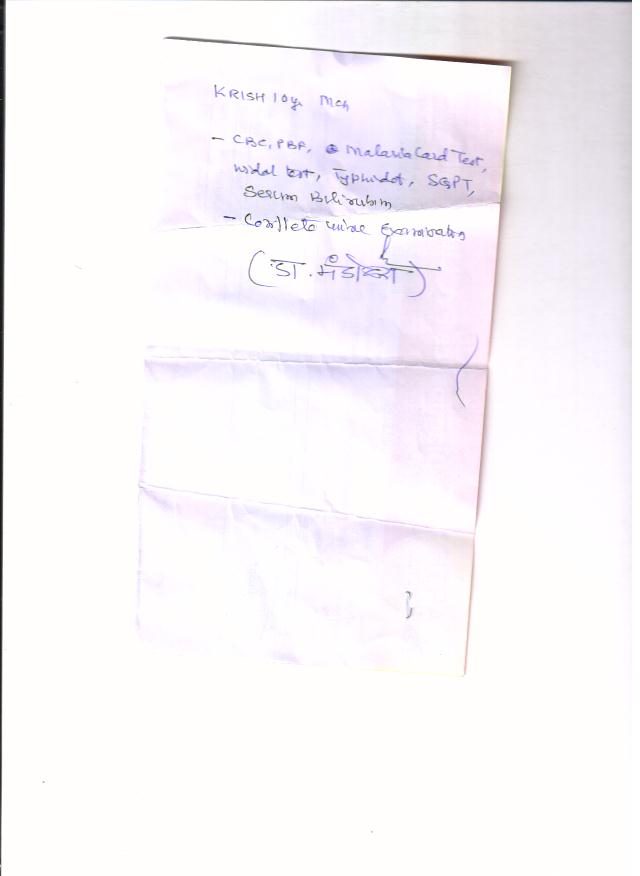 KRISH 10y. Mch
- CBC, PBF, Malaria Card Test,
widal test, Typhidot, SGPT,
Serum Bilirubin
- Complete urine Examination
(डा. मंडोवरा)